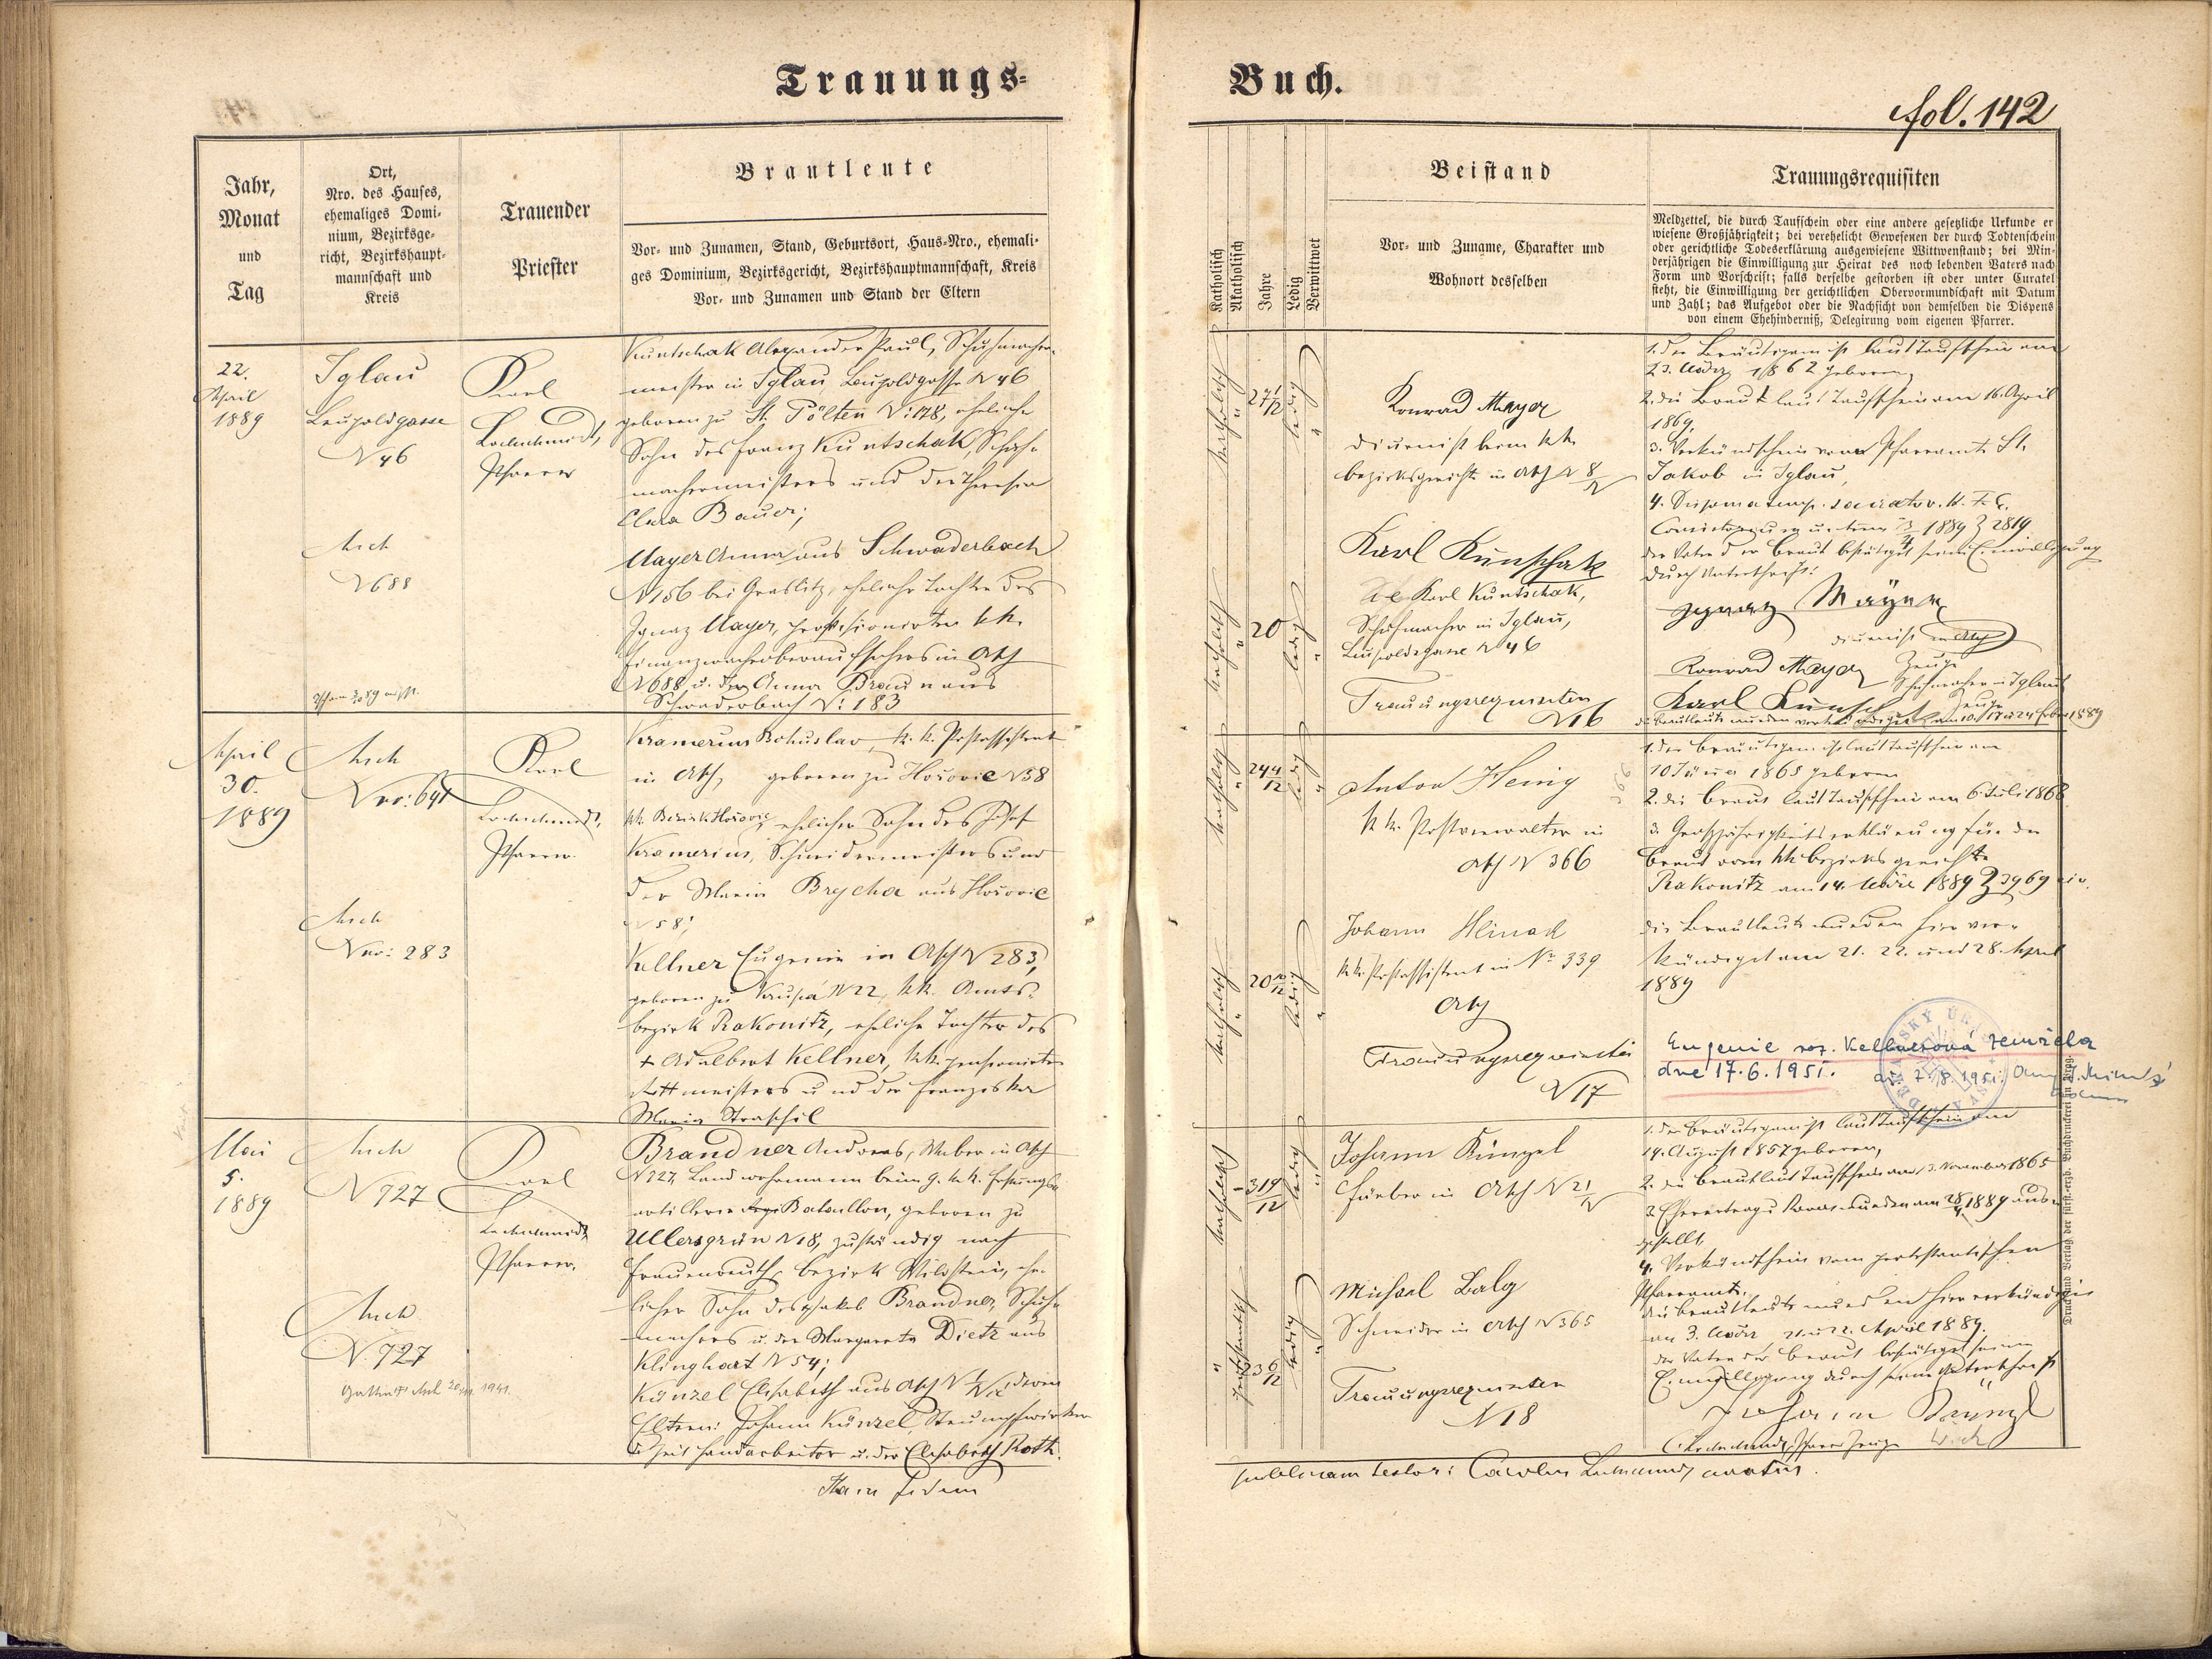 Trauungs-
Buch.
fol. 142
Jahr,
Monat
und
Tag
Ort,
Nro. des Hauses,
ehemaliges Domi-
nium, Bezirksge-
richt, Bezirkshaupt-
mannschaft und
Kreis
Trauender
Priester
Brautleute
Vor- und Zunamen, Stand, Geburtsort, Haus-Nro., ehemali-
ges Dominium, Bezirksgericht, Bezirkshauptmannschaft, Kreis
Vor- und Zunamen und Stand der Eltern
Katholisch
Akatholisch
Jahre
Ledig
Verwittwet
Beistand
Vor- und Zuname, Charakter und
Wohnort desselben
Trauungsrequisiten
Meldzettel, die durch Taufschein oder eine andere gesetzliche Urkunde er
wiesene Großjährigkeit; bei verehelicht Gewesenen der durch Todtenschein
oder gerichtliche Todeserklärung ausgewiesene Wittwenstand; bei Min-
derjährigen die Einwilligung zur Heirat des noch lebenden Vaters nach
Form und Vorschrift; falls derselbe gestorben ist oder unter Curatel
steht, die Einwilligung der gerichtlichen Obervormundschaft mit Datum
und Zahl; das Aufgebot oder die Nachsicht von demselben die Dispens
von einem Ehehinderniß, Delegirung vom eigenen Pfarrer.
22.
April
1889
Iglau
Leupoldgasse
N 46
Asch
N 688
Karl
Lochschmidt,
Pfarrer
Kuntschak Alexander Paul, Schuhmacher-
meister in Iglau Leupoldgasse N 46
geboren zu St. Pölten N: 178, ehelicher
Sohn des Franz Kuntschak, Schuh-
machermeisters und der Theresia
Clara Bauer;
Mayer Anna aus Schwaderbach
N 156 bei Graslitz, eheliche Tochter des
Ignaz Mayer, pensionirten k.k.
Finanzwachoberaufsehers in Asch
N 688 u. der Anna Braun aus
Schwaderbach N: 183
katholisch
27 1/12
ledig
katholisch
20
ledig
Konrad Mayer
Diurnist beim k.k.
Bezirksgericht in Asch N 8
Karl Kunschak
Karl Kuntschak,
Schuhmacher in Iglau,
Leupoldgasse N 46
Trauungsrequisiten
N 16
1. Der Bräutigam ist laut Taufschein am
23. März 1862 geboren,
2. die Braut laut Taufschein am 16. April
1869.
3. Verkündschein vom Pfarramte St.
Jakob in Iglau,
4.
1889 Z 2819
der Vater der Braut bestätigt seine Einwilligung
durch Unterschrift:
Ignaz Mayer
Diurnist in Asch
Konrad Mayer Zeuge
Schuhmacher in Iglau
Karl Kunschak Zeuge
die Brautleute wurden verkündigt am 10. 17 u 24 Feber 1889
April
30.
1889
Asch
Nro: 641
Asch
Nro: 283
Karl
Lochschmidt,
Pfarrer
Kramerius Bohuslav, k. k. Postassistent
in Asch, geboren zu Hořovic N 58
k.k. Bezirk Hořovic, ehelicher Sohn des Josef
Kramerius, Schneidermeisters und
der Maria Brycha aus Hořovic
N 58;
Kellner Eugenie in Asch N 283,
geboren zu Krupá N 22, k.k. Amts-
bezirk Rakonitz, eheliche Tochter des
+ Adalbert Kellner, k.k. pensionirten
meisters und der Franziska
Maria Straschil
katholisch
24 4/12
ledig
katholisch
20 10/12
ledig
Anton Heinig
k. k. Postverwalter in
Asch N 366
Johann Hlinak
k.k. Postassistent in No 339
Asch
Trauungsrequisiten
N 17
1. Der Bräutigam ist laut Taufschein am
10 Jänner 1865 geboren
2. die Braut laut Taufschein am 6 Juli 1868
3. Großjährigkeitserklärung für die
Braut vom k.k. Bezirksgerichte
Rakonitz am 14. März 1889 Z 3969 civ.
die Brautleute wurden hier ver-
kündigt am 21. 22. und 28. April
1889
Eugenie roz. Kellnerová zemřela
dne 17. 6. 1951.
Mai
5.
1889
Asch
N 727
Asch
N. 727
Karl
Lochschmidt
Pfarrer.
Brandner Andreas, Weber in Asch
N 727, Landwehrmann beim 9. k.k. Festungs-
artillerie Bataillon, geboren zu
Ullersgrün N 18, zuständig nach
Frauenreuth, Bezirk Wildstein, ehe-
licher Sohn des Jakob Brandner, Schuh-
machers u. der Margareta Dietz aus
Klinghart N 54;
Künzel Elisabeth aus Asch
Eltern: Johann Künzel, Strumpfwirker
d. Zeit Handarbeiter u. der Elisabeth Roth.
katholisch
31 9/12
ledig
protestantisch
23 6/12
ledig
Johann Künzel
Färber in Asch N 21
Michael Balg
Schneider in Asch N 365
Trauungsrequisiten
N 18
1. Der Bräutigam ist laut Taufschein am
14. August 1857 geboren,
2. die Braut laut Taufschein am 3. November 1865
1889 aus-
gestellt,
4. Verkündschein vom protestantischen
Pfarramte.
die Brautleute wurden hier verkündigt
am 3. März, 21. u 22. April 1889.
der Vater der Braut bestätigt seine
Einwilligung durch seine Unterschrift
Johann Künzel
Lochschmidt, Pfarrer Zeuge
Itam fidem
publicam testor: Carolus Lochschmidt
Druck und Verlag der fürst-erzb. Buchdruckerei in Prag.